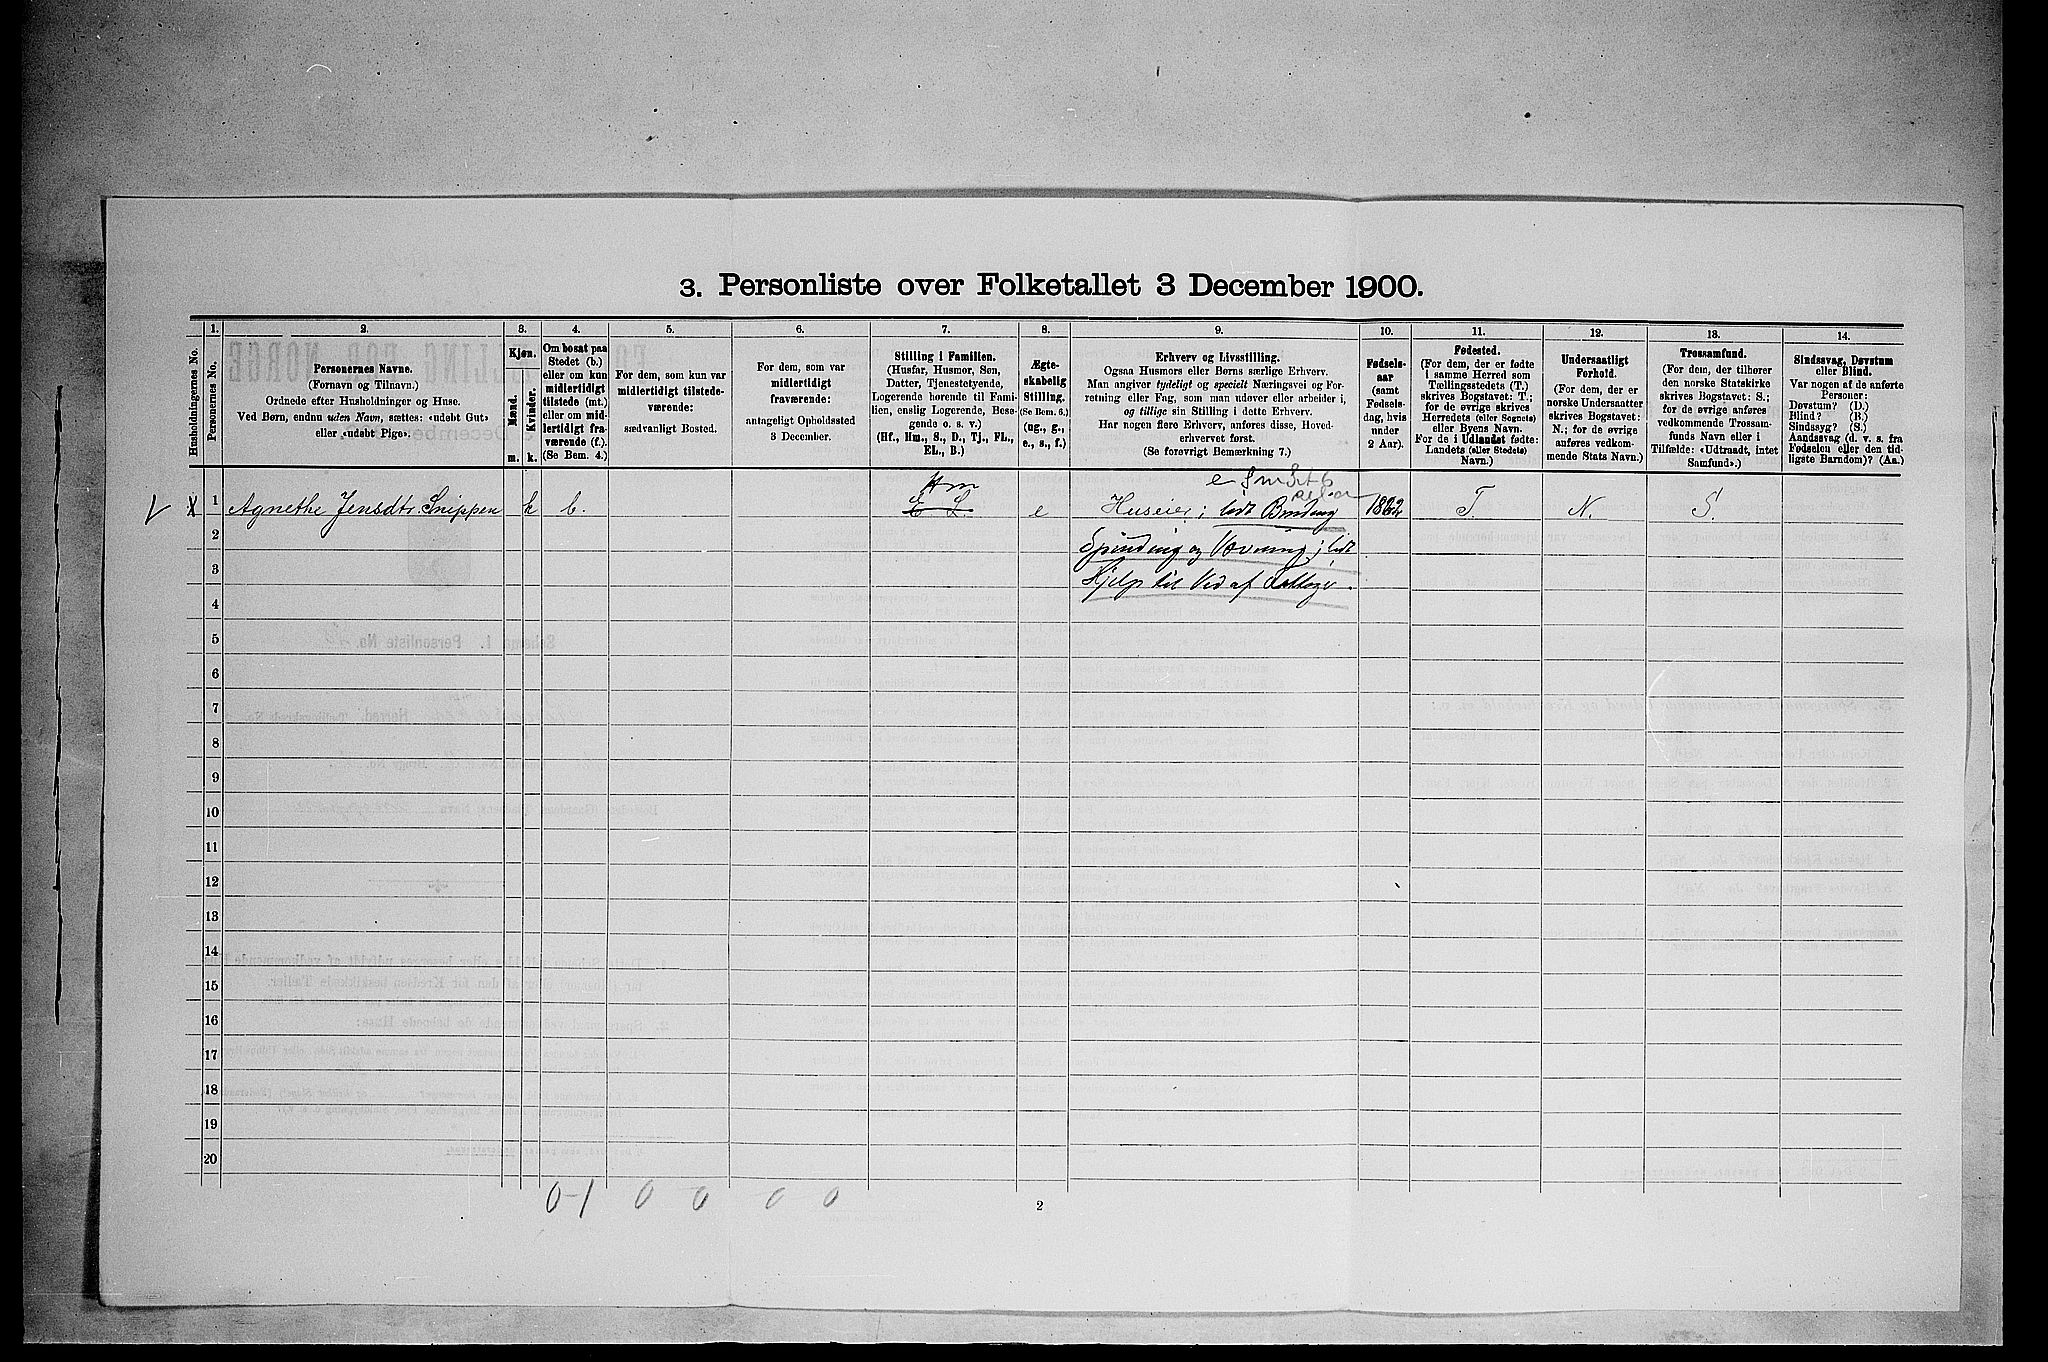 3. Personliste over Folketallet 3 December 1900.
Husholdningernes No.
1.
Personernes No.
2.
Personernes Navne.
(Fornavn og Tilnavn.)
Ordnede efter Husholdninger og Huse.
Ved Børn, endnu uden Navn, sættes: «udøbt Gut»
eller «udøbt Pige».
3.
Kjøn.
Mænd.
Kvinder.
m. k.
4.
Om bosat paa
Stedet (b.)
eller om kun
midlertidigt
tilstede (mt.)
eller om mid-
lertidigt fra-
værende (f.).
(Se Bem. 4.)
5.
For dem, som kun var
midlertidigt tilstede-
værende:
sædvanligt Bosted.
6.
For dem, som var
midlertidigt
fraværende:
antageligt Opholdssted
3 December.
7.
Stilling i Familien.
(Husfar, Husmor, Søn,
Datter, Tjenestetyende,
Logerende hørende til Fami-
lien, enslig Logerende, Besø-
gende o. s. v.)
(Hf., Hm., S., D., Tj., FL.,
EL., B.)
8.
Ægte-
skabelig
Stilling.
(Se Bem. 6.)
(ug., g.,
e., s., f.)
9.
Erhverv og Livsstilling.
Ogsaa Husmors eller Børns særlige Erhverv.
Man angiver tydeligt og specielt Næringsvei og For-
retning eller Fag, som man udøver eller arbeider i,
og tillige sin Stilling i dette Erhverv.
Har nogen flere Erhverv, anføres disse, Hoved-
erhvervet først.
(Se forøvrigt Bemærkning 7.)
10.
Fødsels-
aar
(samt
Fødsels-
dag, hvis
under
2 Aar).
11.
Fødested.
(For dem, der er fødte
i samme Herred som
Tællingsstedets (T.)
skrives Bogstavet: T.;
for de øvrige skrives
Herredets (eller Sognets)
eller Byens Navn.
For de i Udlandet fødte:
Landets (eller Stedets)
Navn.)
12.
Undersaatligt
Forhold.
(For dem, der er
norske Undersaatter
skrives Bogstavet:
N.; for de øvrige
anføres vedkom-
mende Stats Navn.)
13.
Trossamfund.
(For dem, der tilhører
den norske Statskirke
skrives Bogstavet: S.;
for de øvrige anføres
vedkommende Trossam-
funds Navn eller i
Tilfælde: «Udtraadt, intet
Samfund».)
14.
Sindssvag, Døvstum
eller Blind.
Var nogen af de anførte
Personer:
Døvstum? (D.)
Blind? (B.)
Sindssyg? (S.)
Aandssvag (d. v. s. fra
Fødselen eller den tid-
ligste Barndom)? (Aa.)
Hm
V X 1 Agnethe Jensdtr. Snippen k b. E L. e Huseier; lidt Binding 1832 T. N. S.
2 Spinding og Vævning; lidt
3 Hjelp til Ved af
4
5
6
7
8
9
10
11
12
13
14
15
16
17
18
19
20
0-1 0 0 0 0
2